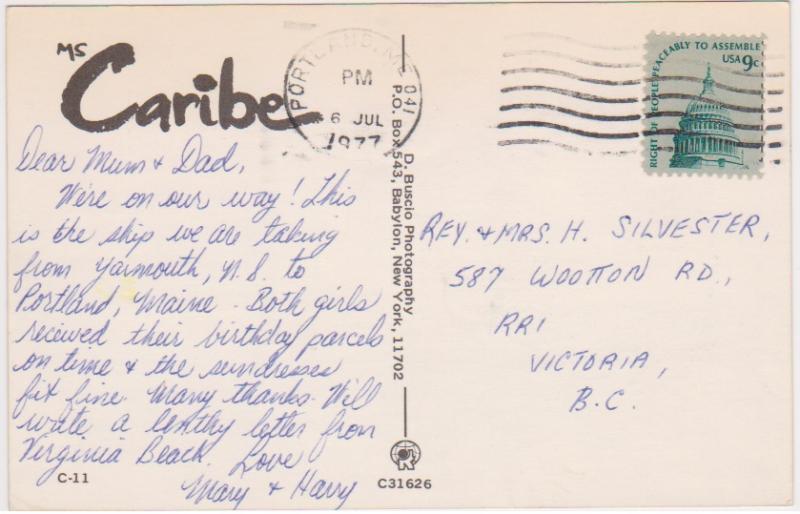 MS
Caribe
Dear Mum & Dad,
We're on our way! This
is the ship we are taking
from Yarmouth, N.S. to
Portland, Maine. Both girls
received their birthday parcels
on time & the sundresses
fit fine. Many thanks. Will
write a lenthy letter from
Virginia Beach. Love
Mary & Harry
C-11
PORTLAND, ME 041
PM
6 JUL
1977
D. Buscio Photography
P.O. Box 543, Babylon, New York, 11702
C31626
RIGHT OF PEOPLE PEACEABLY TO ASSEMBLE
USA 9c
REV. & MRS. H. SILVESTER,
587 WOOTTON RD.,
RR1
VICTORIA,
B.C.